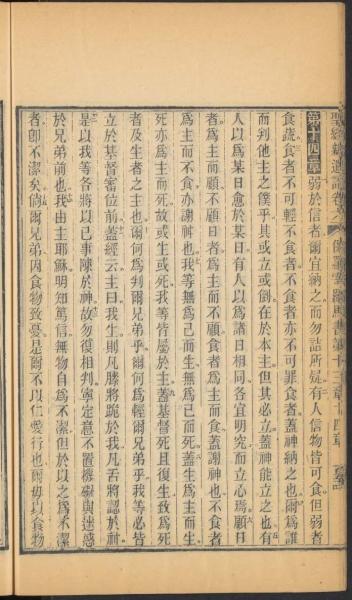 聖經新遺詔
第十四章弱於信者爾宜納之而勿詰所疑有人信物皆可食但弱者
食蔬食者不可輕不食者不食者亦不可罪食者蓋神納之也爾為誰
而判他主之僕乎其或立或倒在於本主但其必立蓋神能立之也有
人以為某日愈於某日有人以為諸日相同各宜明究而立心焉顧日
者為主而顧不顧日者為主而不顧食者為主而食蓋謝神也不食者
為主而不食亦謝神也我等無為己而生無為己而死蓋生為主而生
死亦為主而死故或生或死我等皆屬於主蓋基督死且復生致為死
者及生者之主也爾何為判爾兄弟乎爾何為輕爾兄弟乎我等必皆
立於基督審位前蓋經云主曰我生則凡膝將跪於我凡舌將認於神
是以我等各將以己事陳於神故勿復相判寧定意不置機礙與迷惑
於兄弟前也我由主耶穌明知篤信無物自為不潔但於以之為不潔
者卽不潔矣倘爾兄弟因食物致憂是爾不以仁愛行也爾毋以食物